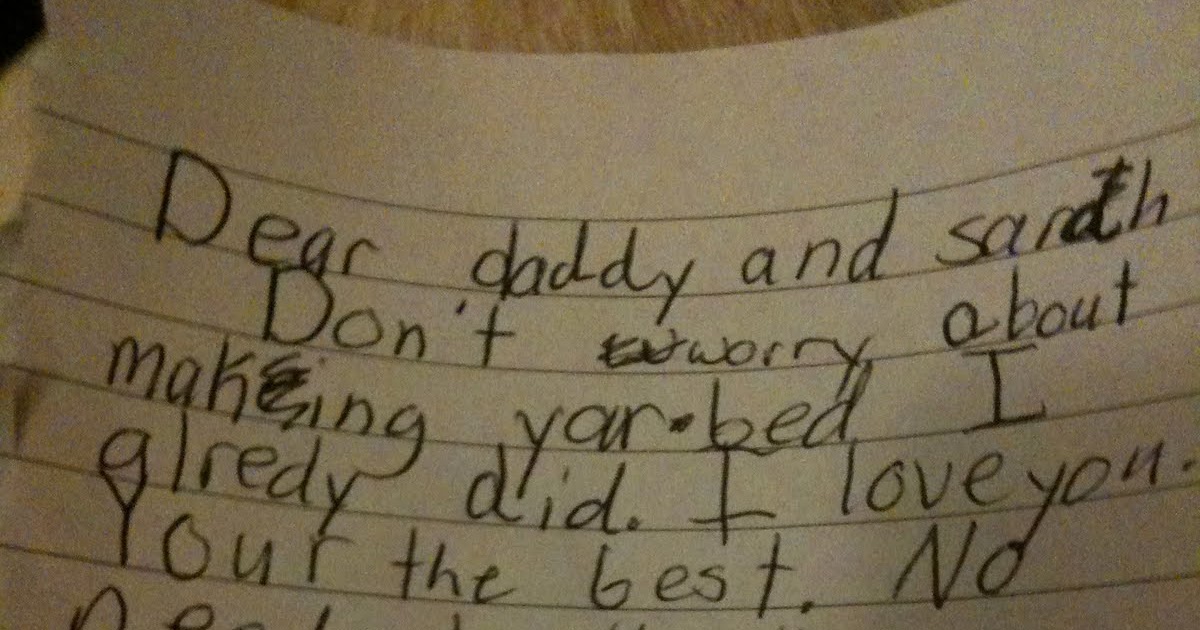 Dear daddy and sarah
Don't worry about
making yar bed I
alredy did. I love you.
Your the best. No